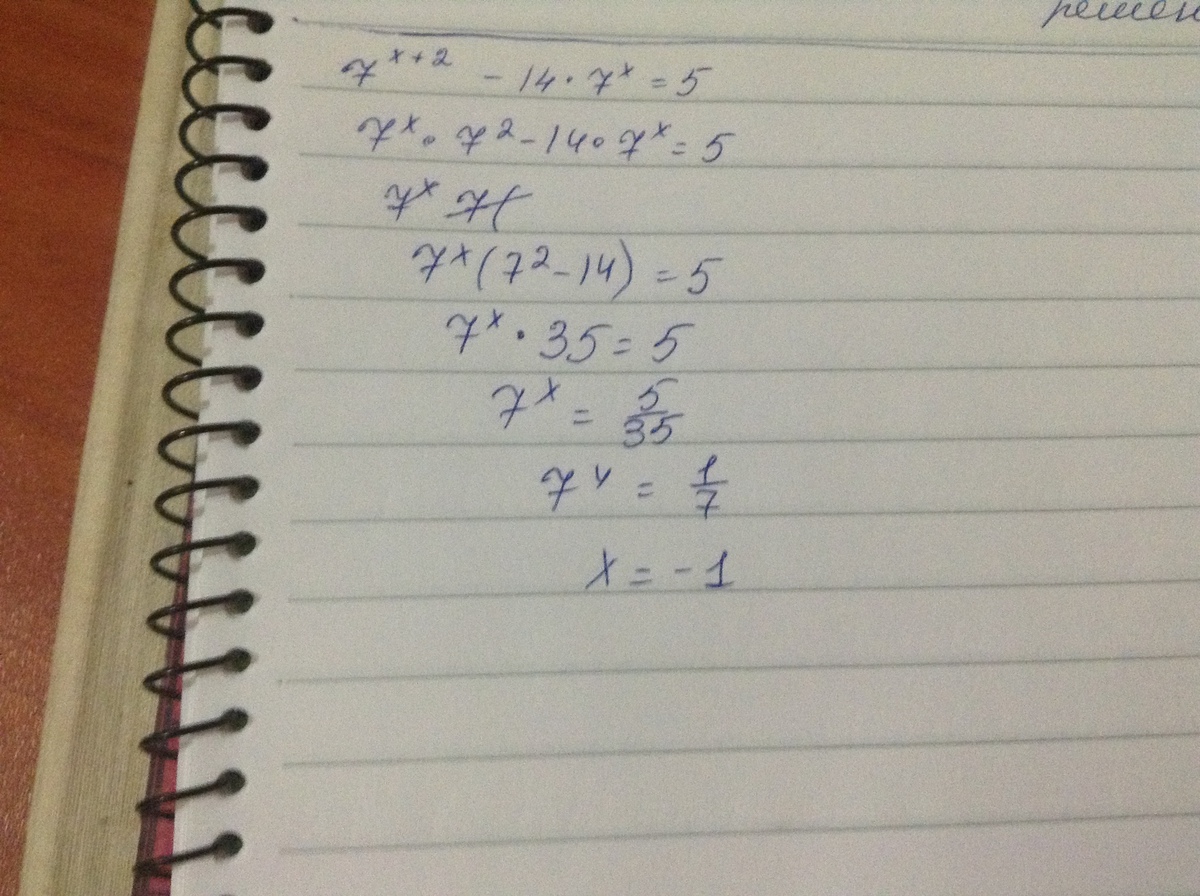 решен
7^{x+2} - 14 · 7^x = 5
7^x · 7^2 - 14 · 7^x = 5
7^x 7(
7^x (7^2 - 14) = 5
7^x · 35 = 5
7^x = 5/35
7^x = 1/7
x = -1